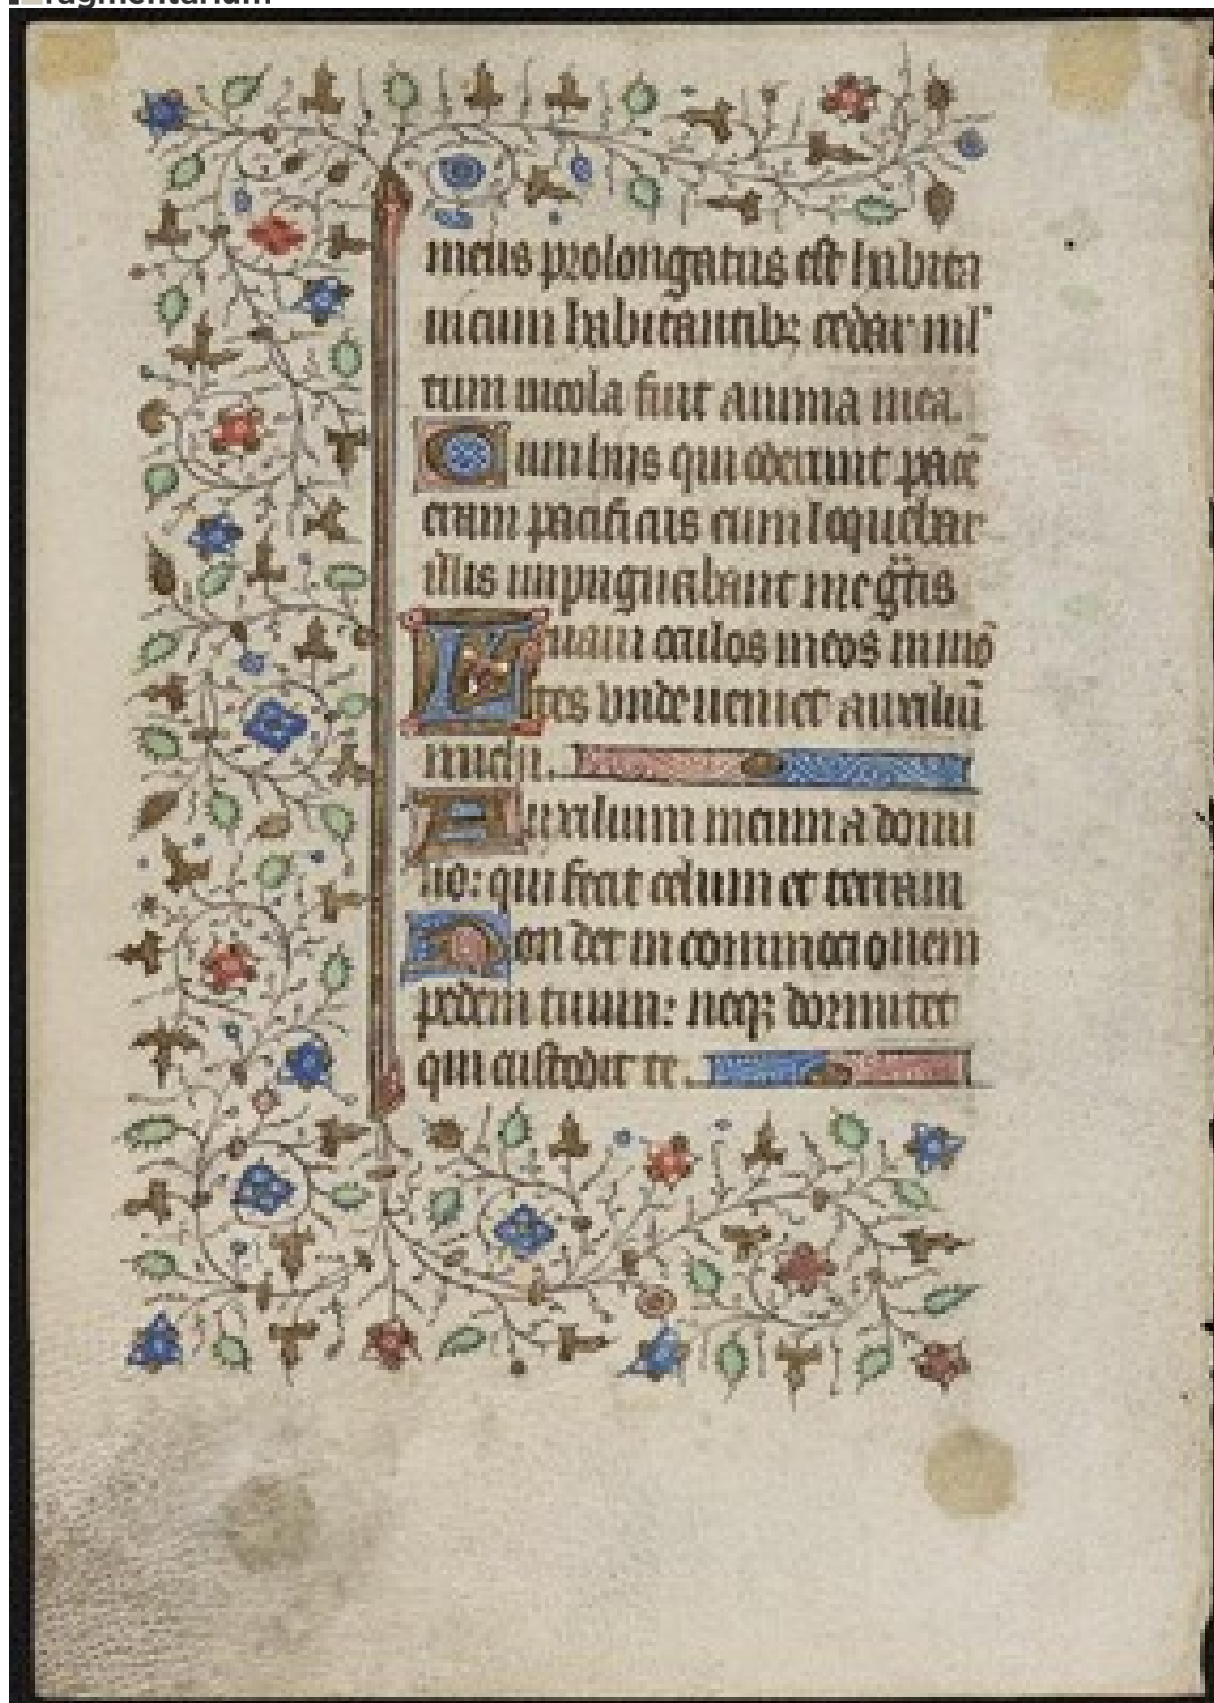 fragmentarium
meus prolongatus est habita
ui cum habitantibꝫ cedar mľ
tum incola fuit anima mea.
Cum hiis qui oderunt pacē
eram pacificus cum loquebar
illis impugnabant me gͣtis
Leuaui oculos meos in mō
tes vnde ueniet auxiliū
michi.
Auxilium meum a domi
no: qui fecit celum et terram
Non det in commocionem
pedem tuum: neqꝫ dormitet
qui custodit te.